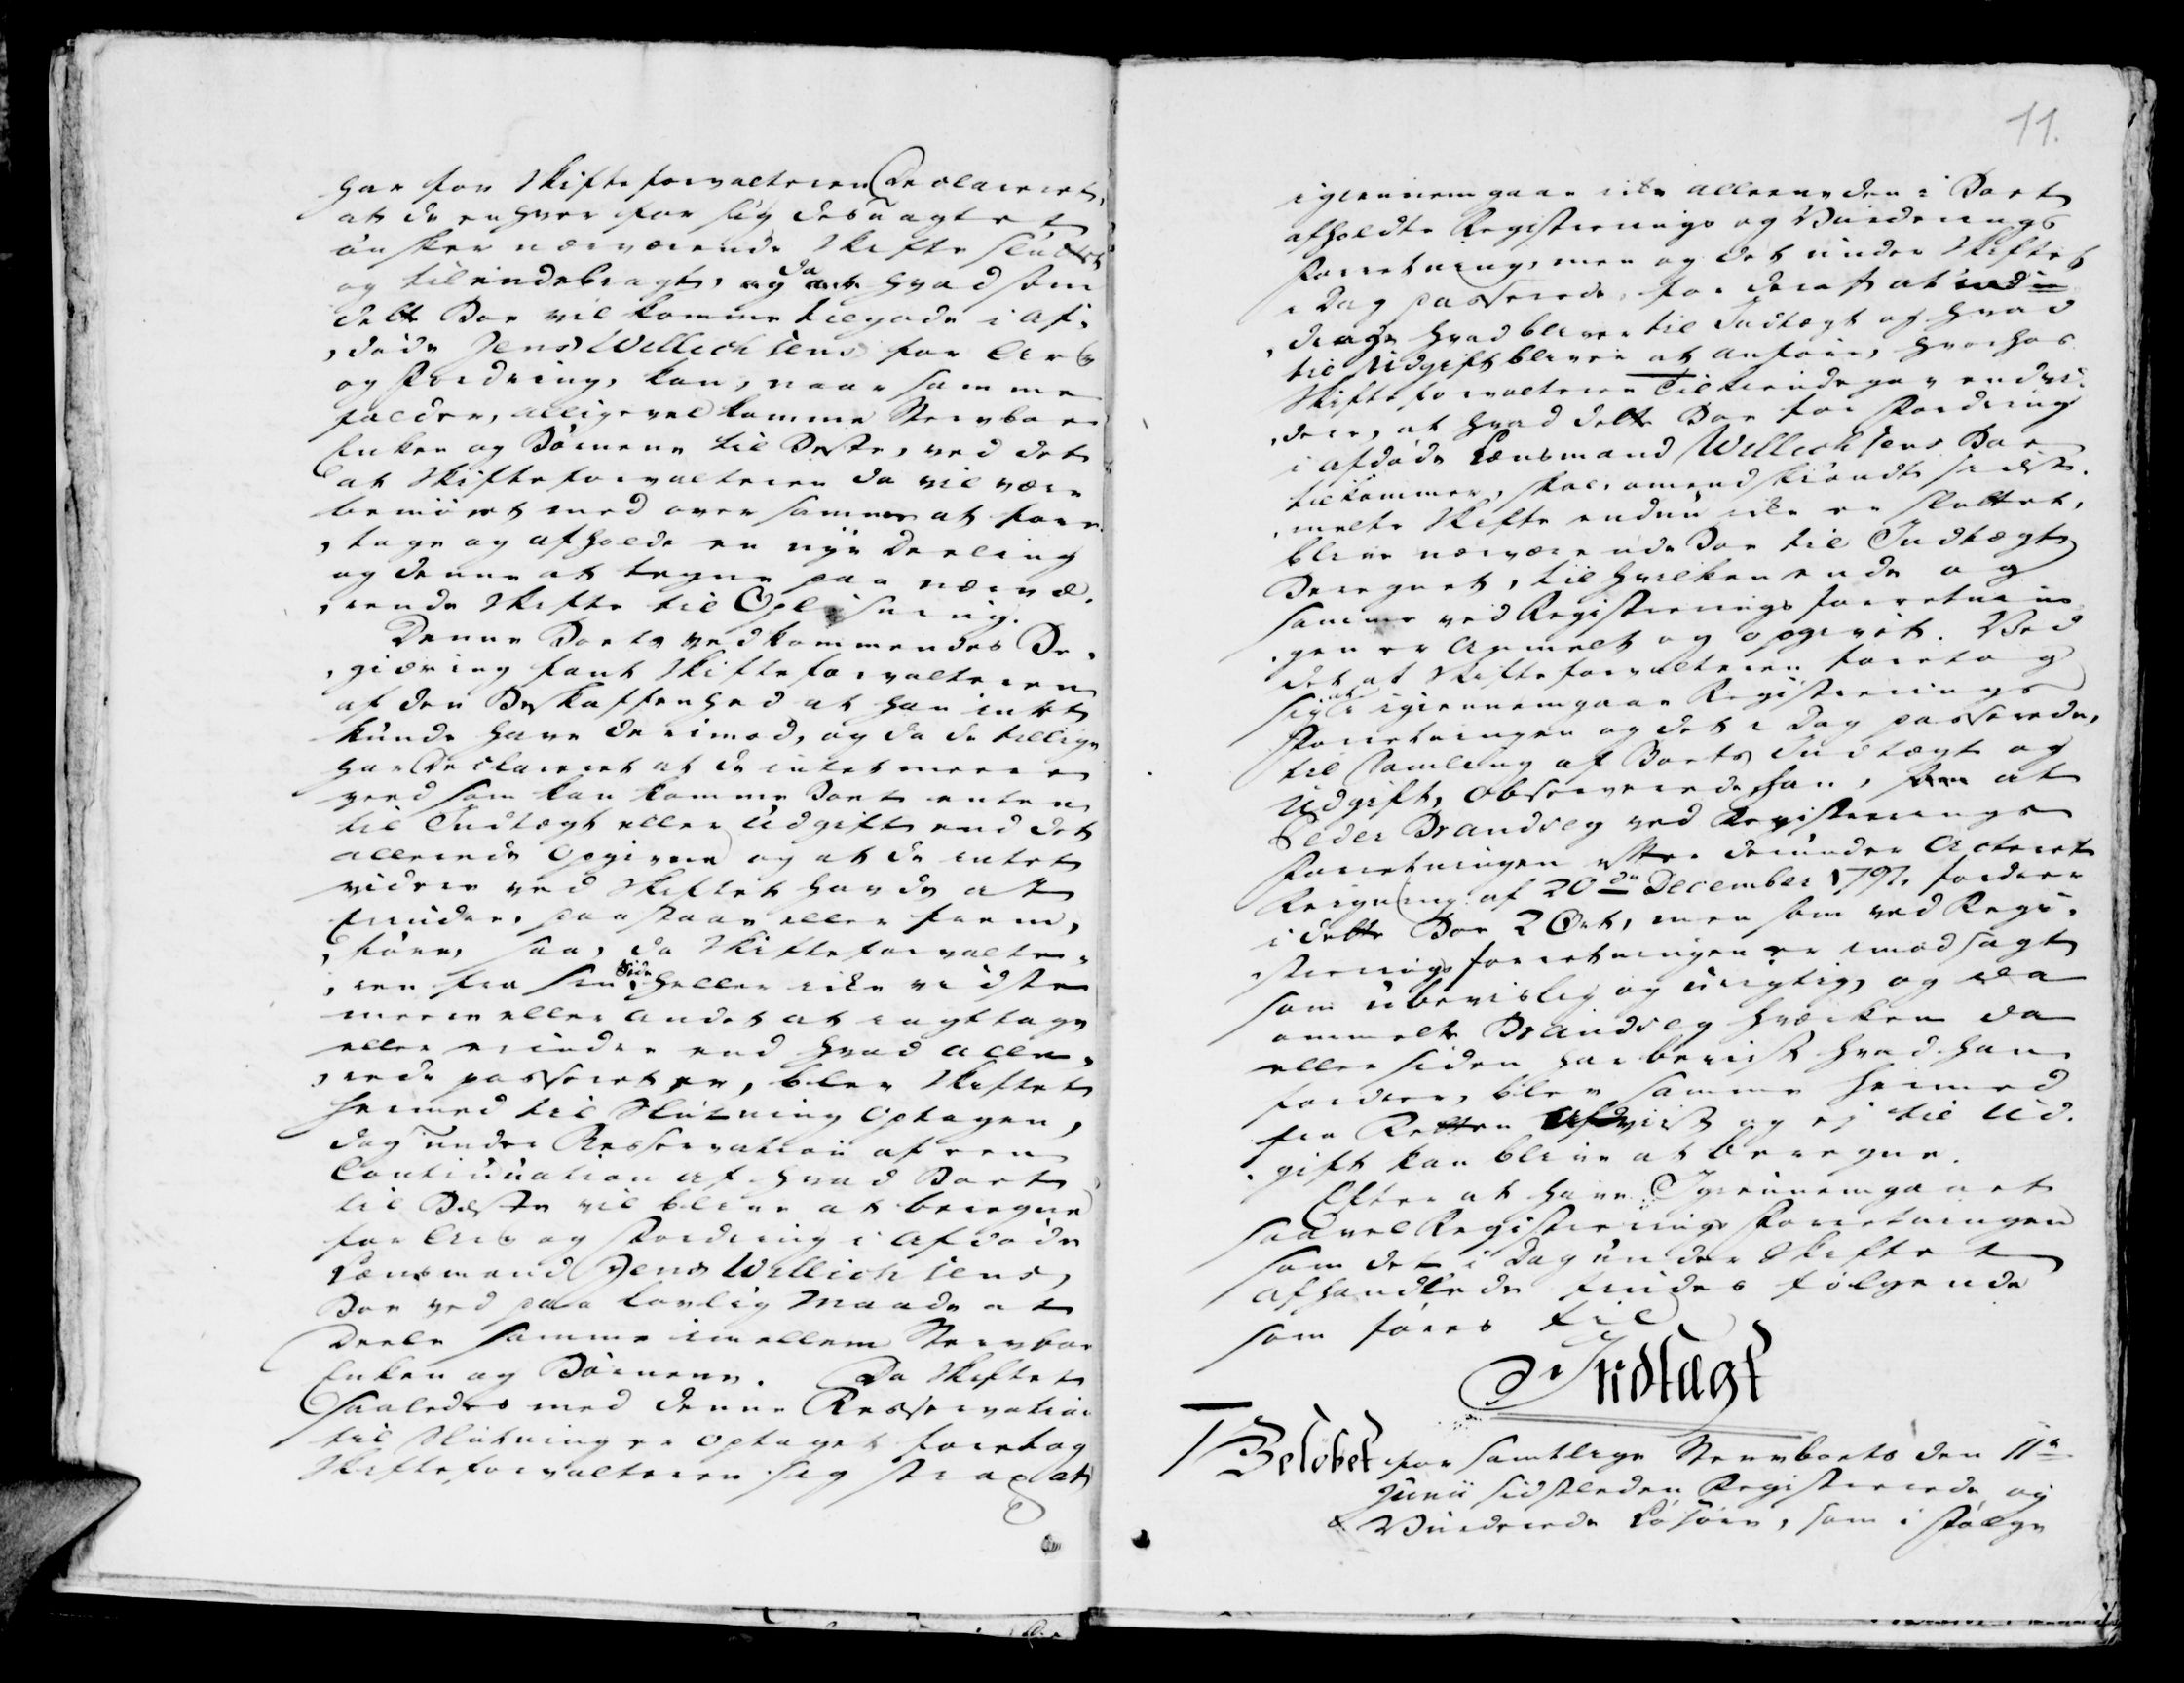 har for Skifteforvalteren Declareret,
at de enhver for sig desuagtet
ønsker nærværende Skifte sluttet
og tilendebragt, og da hvad som
dette Boe vil komme tilgode i af„
„døde Jens Wellechsens for Arv
og Fordring, kan, naar samme
falder, alligevel komme Sterboe
Enken og Børnene til Beste, ved det
at Skifteforvalteren da vil være
bemøiet med over samme at fore„
„tage og afholde en nye Deeling
og denne at tegne paa nærvæ„
„rende Skifte til Oplysning.
Denne Boets vedkommendes Be„
„giæring fant Skifteforvalteren
af den Beskaffenhed at han intet
kunde have derimod, og da de tillige
har Declareret at de intet meere
veed som kan komme Boet enten
til Indtægt eller Udgift end det
allerede Opgivne og at de intet
videre ved Skiftet havde at
erindre, paastaae eller frem„
„føre, saa, da Skifteforvalte„
„ren fra sin Side heller ikke vidste
meere eller andet at iagttage
eller erindre end hvad alle„
„rede passeret er, blev Skiftet
hermed til Slutning Optagen,
dog under Resservation af een
Continuation af hvad Boet
til Beste vil blive at beregne
for Arv og Fordring i Afdøde
Lænsmand Jens Wellichsens
Boe ved paa lovlig Maade at
Deele samme imellem Sterboe
Enken og Børnene. Da Skiftet
saaledes med denne Resservation
til Slutning er Optaget foretog
Skifteforvalteren sig strax at
11.
igiennemgaae ikke alleene den i Boet
afholdte Registerings og Vurderings
Forretning, men og det under Skiftet
i Dag passerede, for deraf at ind
„drage hvad bliver til Indtægt og hvad
til Udgift bliver at anføre, hvorhos
Skifteforvalteren Tilkiendegav endvi„
„dere, at hvad dette Boe for Fordring
i afdøde Lænsmand Wellichsens Boe
tilkommer, skal, omendskiøndt sidst„
„melte Skifte endnu ikke er sluttet,
blive nærværende Boe til Indtægt
Beregnet, til hvilken ende og
samme ved Registerings forretnin„
„gen er Anmelt og opgivet. Ved
det at Skifteforvalteren foretog
sig at igiennemgaae Registerings
Forretningen og det i Dag passerede,
til Samling af Boets Indtægt og
Udgift, observerede han, at
Peder Brandseg ved Registerings
Forretningen efter derunder Acteret
Reigning af 20de December 1797, fordrer
i dette Boe 2 Ort, men som ved Regi„
„sterings forretningen er imodsagt
som ubeviislig og urigtig, og da
ommelte Brandseg hverken da
eller siden har bevist hvad han
fordrer, blev samme hermed
fra Retten Afviist og ej til Ud„
„gift kan blive at beregne.
Efter at have Igiennemgaaet
saavel Registerings Forretningen
som det i Dag under Skiftet
afhandlede findes følgende
som føres til
Indtægt
Beløbet for samtlige Sterboets den 11te
Junii sidstleden Registerede og
Vurderede Løsøre, som i Følge